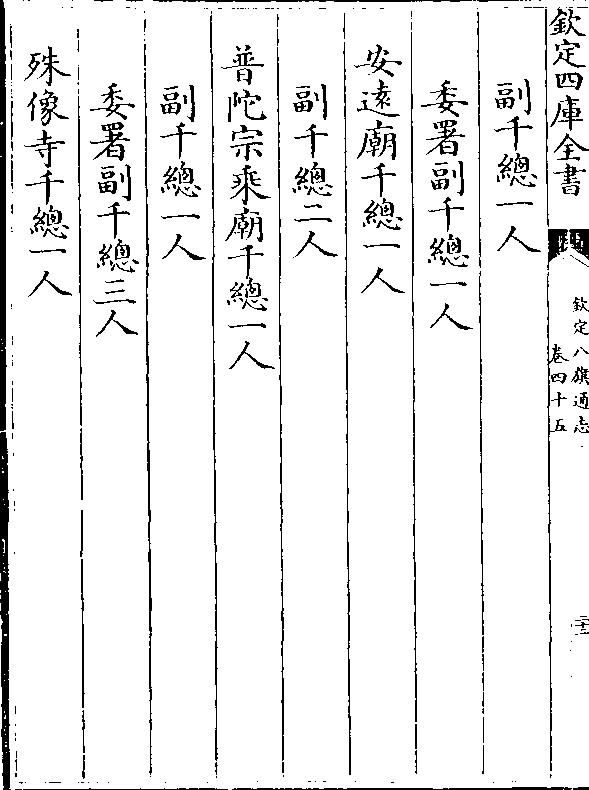 欽定四庫全書
欽定八旗通志
卷四十五
副千總一人
委署副千總一人
安遠廟千總一人
副千總二人
普陀宗乘廟千總一人
副千總一人
委署副千總三人
殊像寺千總一人